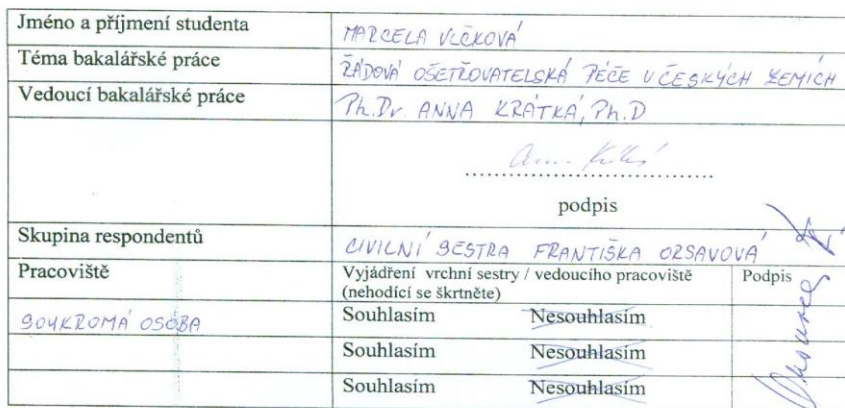 Jméno a příjmení studenta MARCELA VLČKOVÁ
Téma bakalářské práce ŘÁDOVÁ OŠETŘOVATELSKÁ PÉČE V ČESKÝCH ZEMÍCH
Vedoucí bakalářské práce Ph.Dr ANNA KRÁTKÁ, Ph.D
podpis
Skupina respondentů CIVILNÍ SESTRA FRANTIŠKA ORSAVOVÁ
Pracoviště Vyjádření vrchní sestry / vedoucího pracoviště Podpis
(nehodící se škrtněte)
SOUKROMÁ OSOBA Souhlasím Nesouhlasím
Souhlasím Nesouhlasím
Souhlasím Nesouhlasím